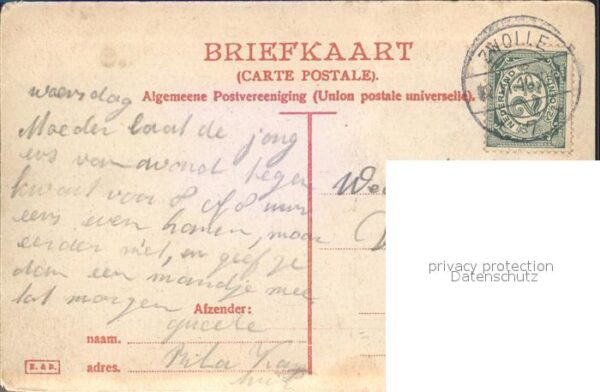 BRIEFKAART
(CARTE POSTALE).
Algemeene Postvereeniging (Union postale universelle).
ZWOLLE
NEDERLAND
2½
woensdag
Moeder laat de jong
eens van avond tegen
kwart voor 8 of 8 uur
eens even komen, maar
eerder niet, en geef ze
dan een mandje mee
tot morgen
Afzender:
naam.
adres.
We
privacy protection
Datenschutz